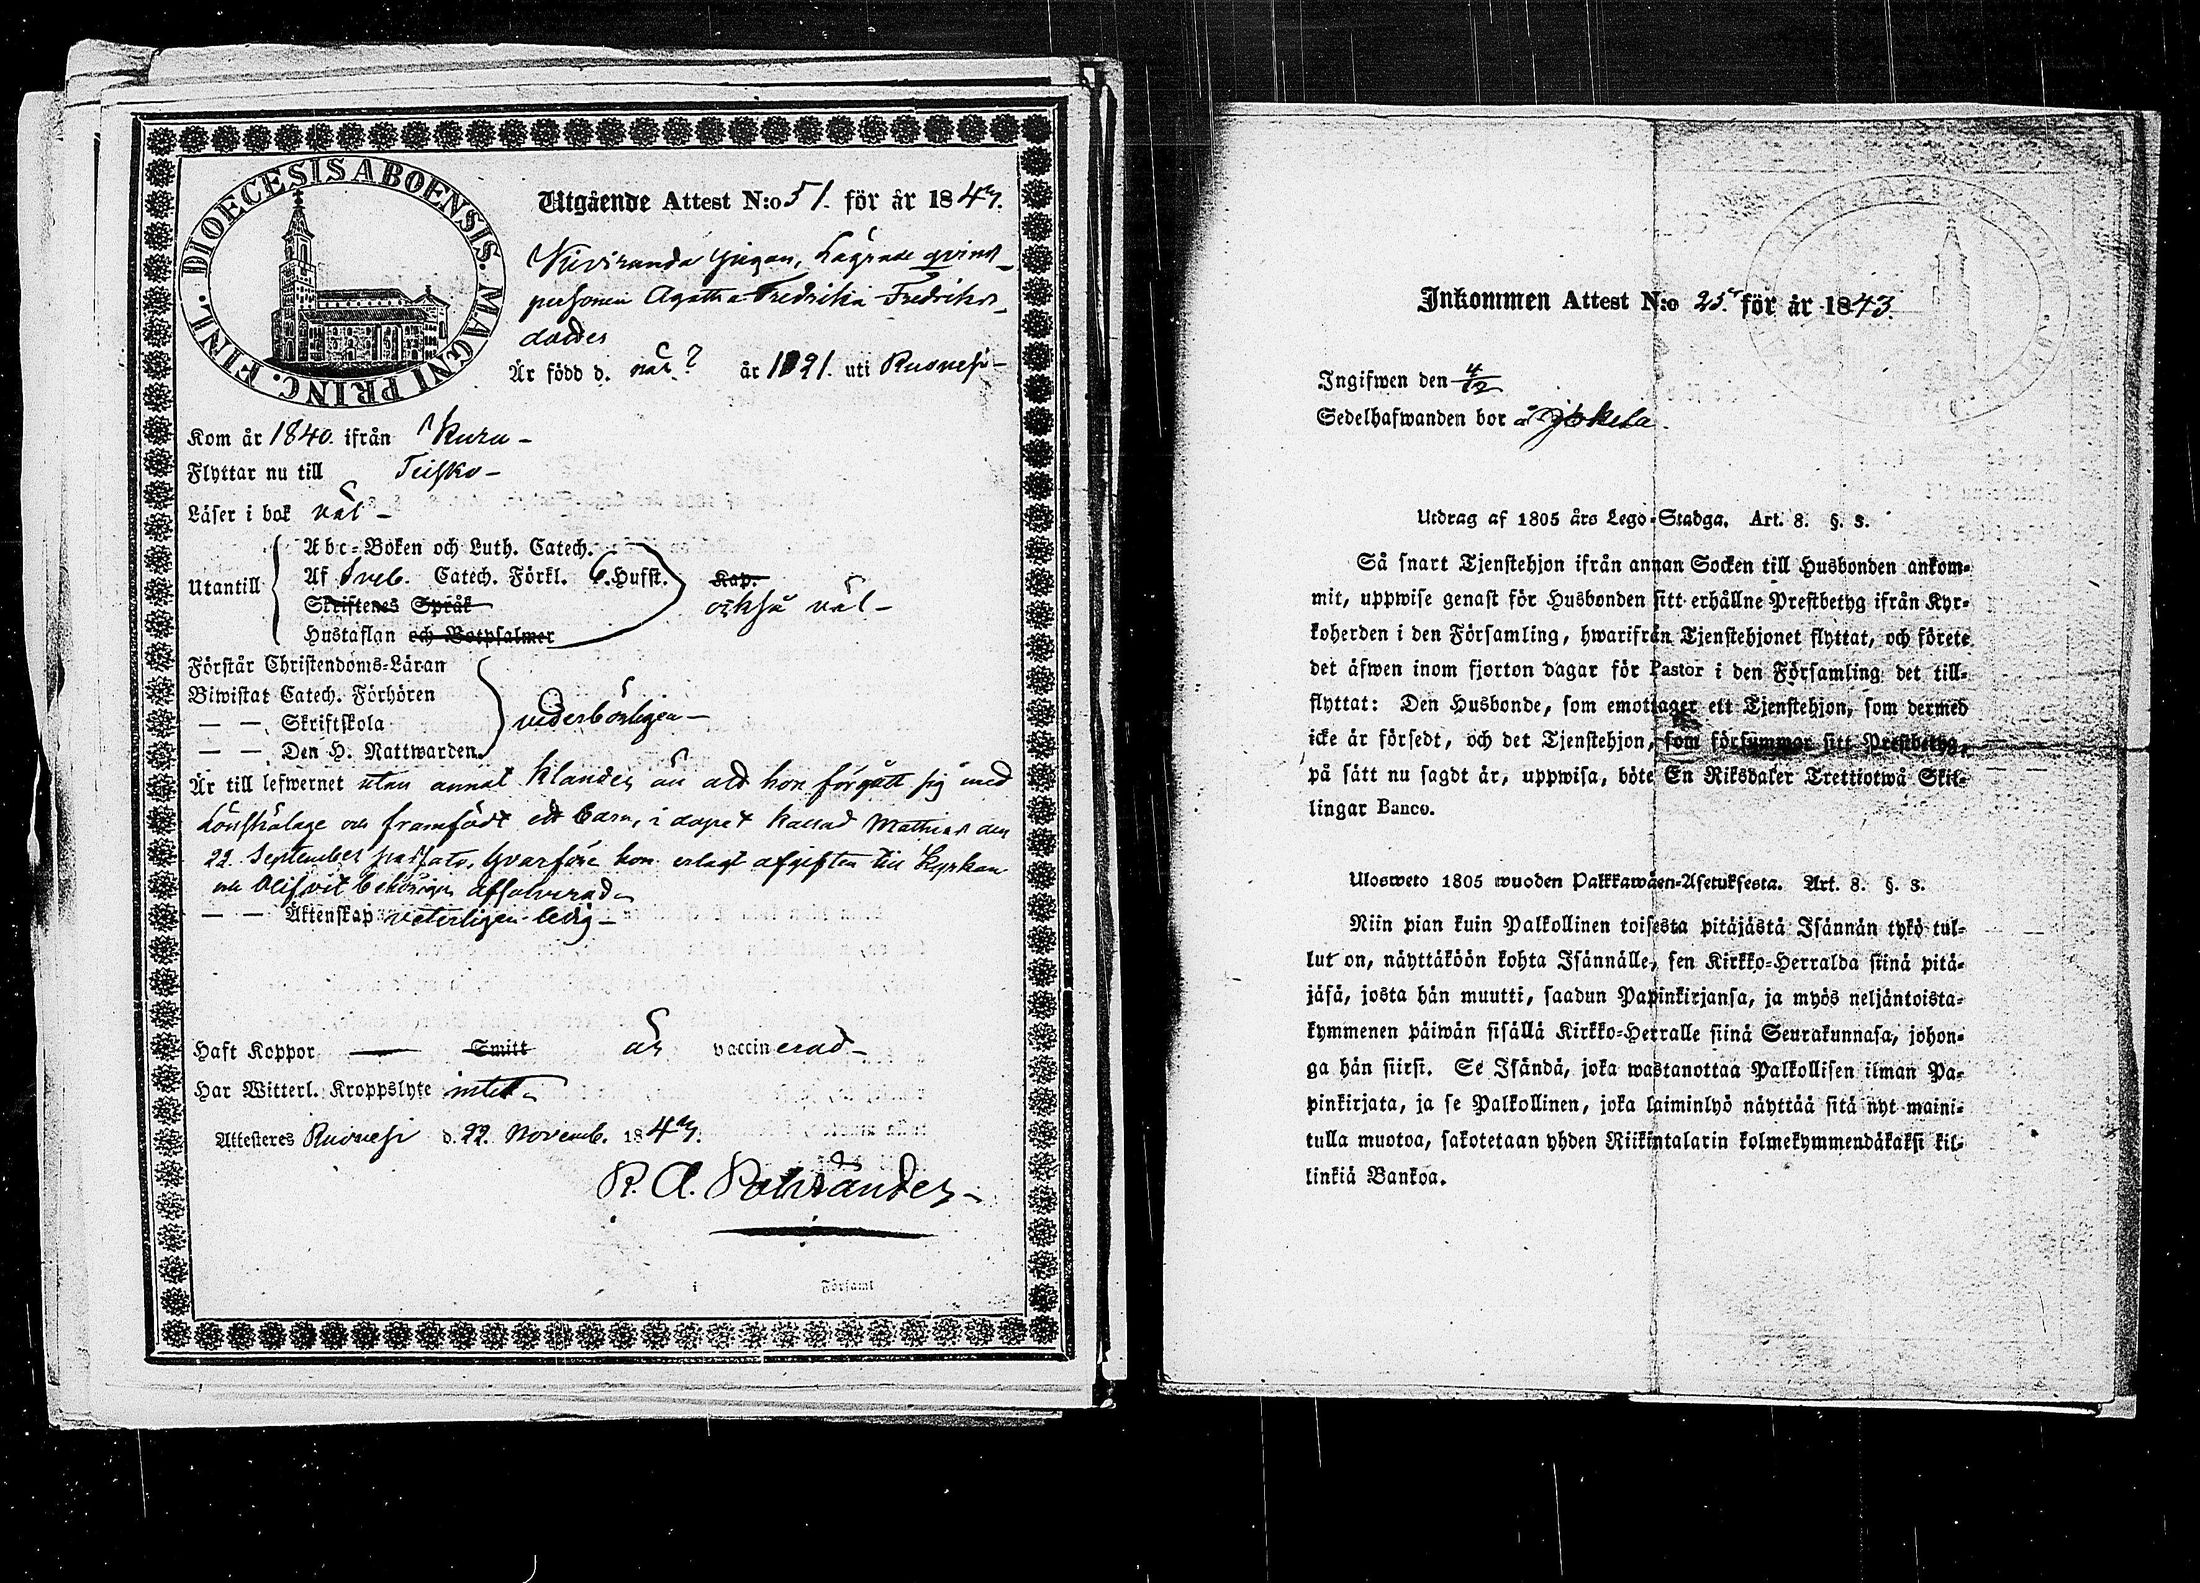 DIOECESIS ABOENSIS. MAGNI PRINC. FINL.
Utgående Attest N:o 51. för år 1843.
Pigan, Lägrade qvins-
personen Agatha Fredrika Fredriks-
dotter
Är född d. när? år 1821. uti Ruovesi-
Kom år 1840. ifrån Kuru-
Flyttar nu till Teisko-
Läser i bok väl-
Utantill
Abc-Boken och Luth. Catech.
Af Sveb. Catech. Förkl. C. Hufst. Kap.
Skriftenes Språk också väl-
Hustaflan och Botpsalmer
Förstår Christendoms-Läran
Biwistat Catech. Förhören
— — Skriftskola vederbörligen-
— — Den H. Nattwarden
Är till lefwernet utan annat klander än att hon förgått sig med
Lönskaläge och framfödt ett barn, i dopet kallad Mathias den
22 September passato, hvarföre hon erlagt afgiften till Kyrkan
och blifvit behörigen absolverad-
— — Äktenskap veterligen ledig-
Haft Koppor — Smitt är vaccinerad-
Har Witterl. Kroppslyte intet-
Attesteres Ruovesi d. 22. Novemb. 1843.
R. A.
i Församl
Inkommen Attest N:o 25. för år 1843.
Ingifwen den 4/12
Sedelhafwanden bor å Jokela.
Utdrag af 1805 års Lego-Stadga. Art. 8. §. 3.
Så snart Tjenstehjon ifrån annan Socken till Husbonden ankom-
mit, uppwise genast för Husbonden sitt erhållne Prestbetyg ifrån Kyr-
koherden i den Församling, hwarifrån Tjenstehjonet flyttat, och förete
det äfwen inom fjorton dagar för Pastor i den Församling det till-
flyttat: Den Husbonde, som emottager ett Tjenstehjon, som dermed
icke är försedt, och det Tjenstehjon, som försummar sitt Prestbetyg,
på sätt nu sagdt är, uppwisa, böte En Riksdaler Trettiotwå Skil-
lingar Banco.
Ulosweto 1805 wuoden Palkkawäen-Asetuksesta. Art. 8. §. 3.
Niin pian kuin Palkollinen toisesta pitäjästä Isännän tykö tul-
lut on, näyttäköön kohta Isännälle, sen Kirkko-Herralda siinä pitä-
jäsä, josta hän muutti, saadun Papinkirjansa, ja myös neljäntoista-
kymmenen päiwän sisällä Kirkko-Herralle siinä Seurakunnasa, johon-
ga hän siirsi. Se Isändä, joka wastanottaa Palkollisen ilman Pa-
pinkirjata, ja se Palkollinen, joka laiminlyö näyttää sitä nyt maini-
tulla muotoa, sakotetaan yhden Riikintalarin kolmekymmendäkaksi kil-
linkiä Bankoa.